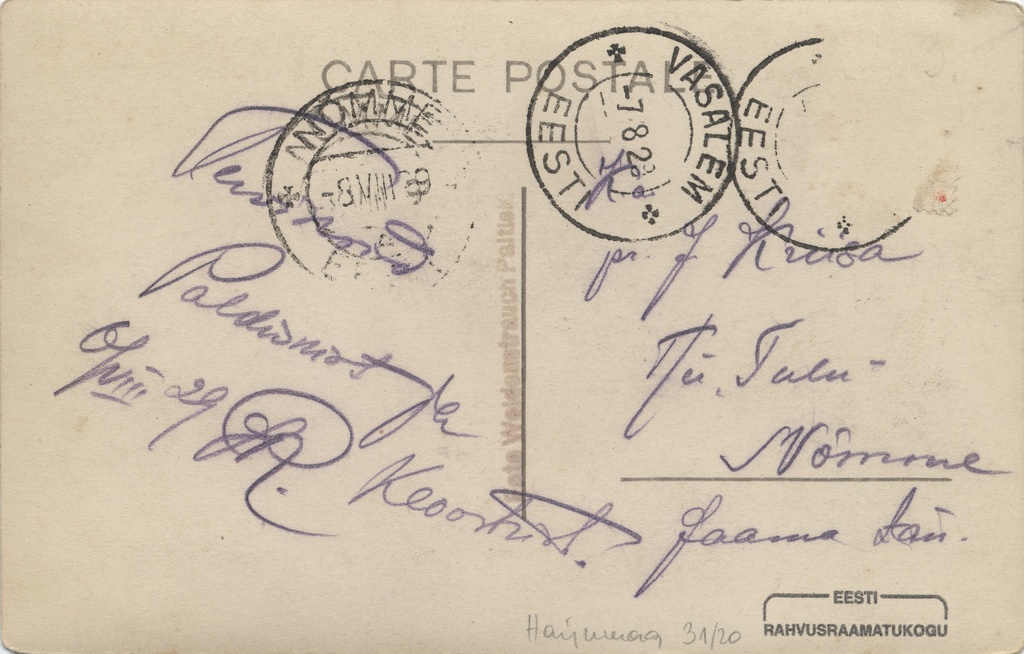 CARTE POSTALE
NÕMME
-8 VIII 29
EESTI
VASALEM
-7 8 29
EESTI
EESTI
Foto Weidenstrauch Paltiski
Tervisid
Paldiskist ja
Kloostrist.
6/VIII 29
pr. J. Kriisa
Tulu
Nõmme
Jaama tän.
Harjumaa 31/20
EESTI
RAHVUSRAAMATUKOGU